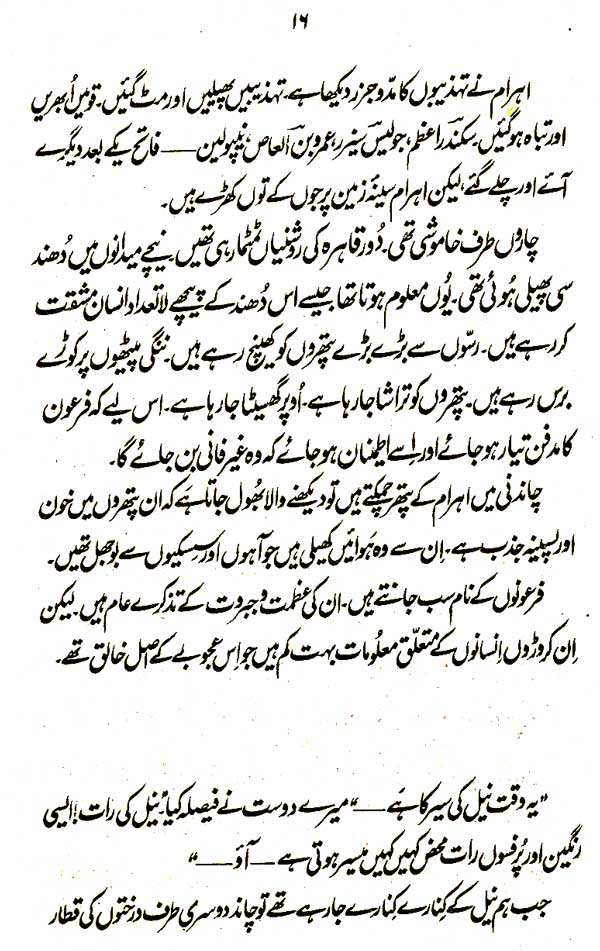 ۱۶
اہرام نے تہذیبوں کا مدّو جزر دیکھا ہے۔ تہذیبیں پھیلیں اور مٹ گئیں۔ قومیں اُبھریں
اور تباہ ہو گئیں۔ سکندر اعظم، جولیس سیزر، عمرو بن العاص، نیپولین —— فاتح یکے بعد دیگرے
آئے اور چلے گئے، لیکن اہرام سینۂ زمین پر جوں کے توں کھڑے ہیں۔
چاروں طرف خاموشی تھی۔ دُور قاہرہ کی روشنیاں ٹمٹما رہی تھیں۔ نیچے میدانوں میں دُھند
سی پھیلی ہوئی تھی۔ یُوں معلوم ہوتا تھا جیسے اس دُھند کے پیچھے لاتعداد انسان مشقت
کر رہے ہیں۔ رسّوں سے بڑے بڑے پتھروں کو کھینچ رہے ہیں۔ ننگی پیٹھوں پر کوڑے
برس رہے ہیں۔ پتھروں کو تراشا جا رہا ہے۔ اُوپر گھسیٹا جا رہا ہے۔ اس لیے کہ فرعون
کا مدفن تیار ہو جائے اور اِسے اطمنان ہو جائے کہ وہ غیر فانی بن جائے گا۔
چاندنی میں اہرام کے پتھر چمکتے ہیں تو دیکھنے والا بھُول جاتا ہے کہ ان پتھروں میں خون
اور پسینہ جذب ہے۔ اِن سے وہ ہوائیں کھیلی ہیں جو آہوں اور سسکیوں سے بوجھل تھیں۔
فرعونوں کے نام سب جانتے ہیں۔ ان کی عظمت و جبروت کے تذکرے عام ہیں۔ لیکن
اِن کروڑوں اِنسانوں کے متعلّق معلُومات بہت کم ہیں جو اِس عجوبے کے اصل خالق تھے۔
"یہ وقت نیل کی سیر کا ہے ——" میرے دوست نے فیصلہ کیا۔ "نیل کی رات! ایسی
رنگین اور پُر فسوں رات محض کہیں کہیں میسر ہوتی ہے — آؤ —"
جب ہم نیل کے کنارے کنارے جا رہے تھے تو چاند دوسری طرف درختوں کی قطار